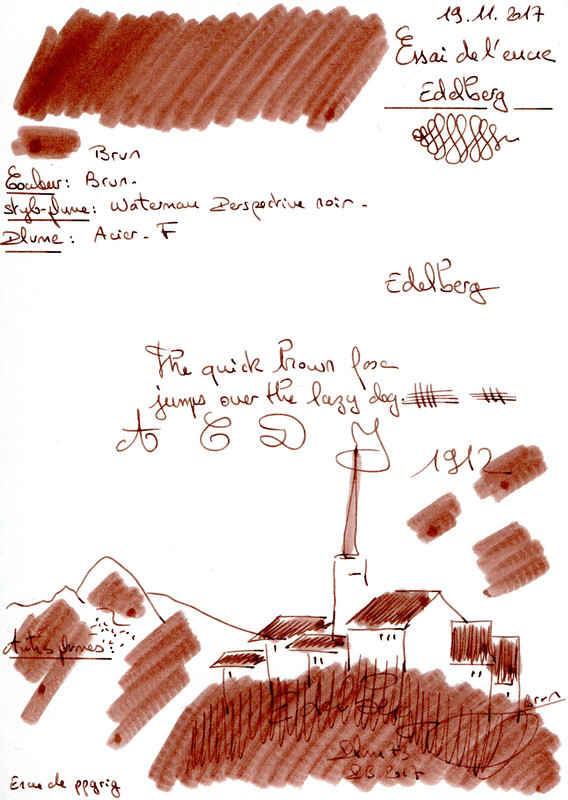 19.11.2017
Essai de l'encre
Edelberg
Brun
Couleur: Brun.
Stylo-plume: Waterman Perspective noir.
Plume: Acier. F
Edelberg
The quick brown fox
jumps over the lazy dog.
A C D
1912
Autres plumes:
Brun
Encre de ppgrig